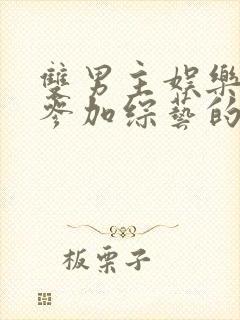 雙男主娛樂
參加綜藝的
板栗子